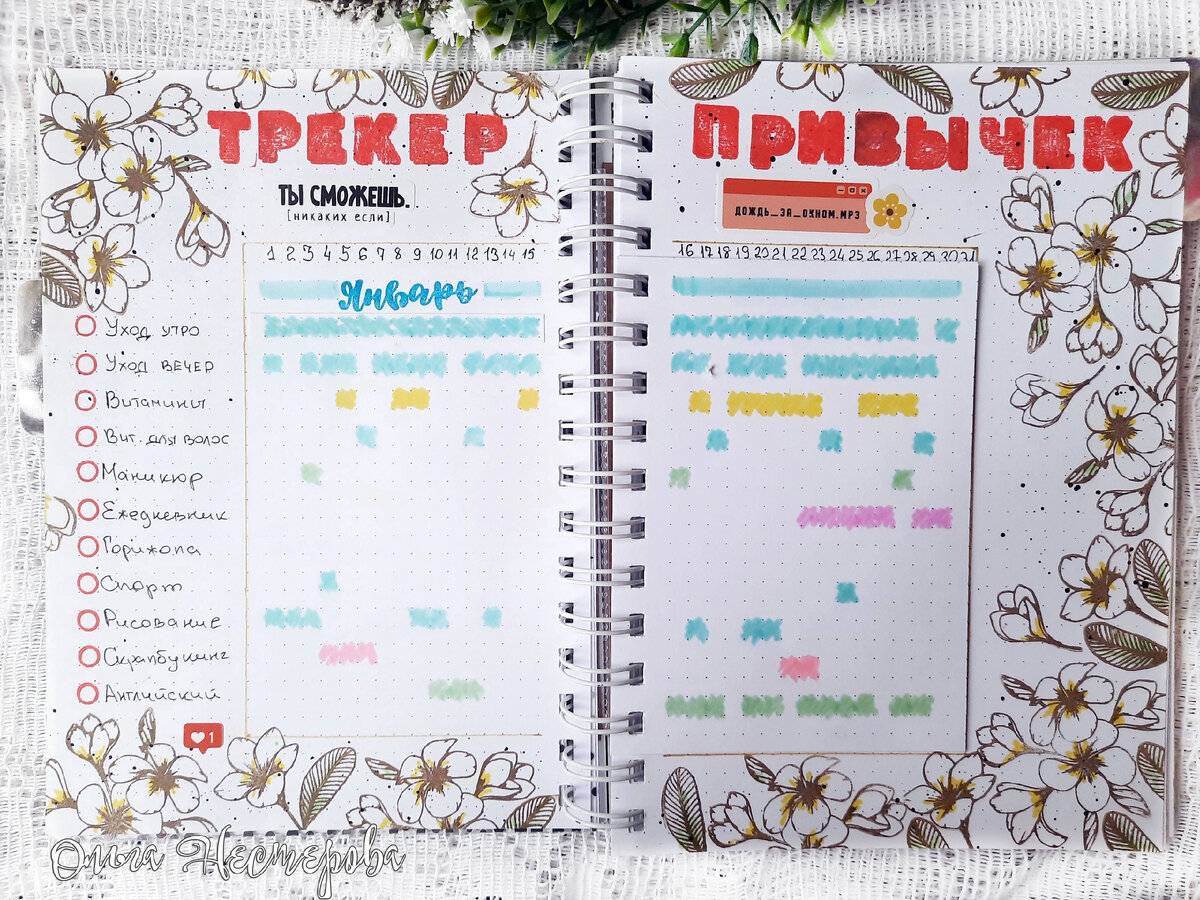 ТРЕКЕР
ПРИВЫЧЕК
ТЫ СМОЖЕШЬ.
[никаких если]
ДОЖДЬ_ЗА_ОКНОМ.MP3
1 2 3 4 5 6 7 8 9 10 11 12 13 14 15
16 17 18 19 20 21 22 23 24 25 26 27 28 29 30 31
Январь
Уход утро
Уход вечер
Витамины
Вит. для волос
Маникюр
Ежедневник
Горижопа
Спорт
Рисование
Скрапбукинг
Английский
1
Ольга Нестерова